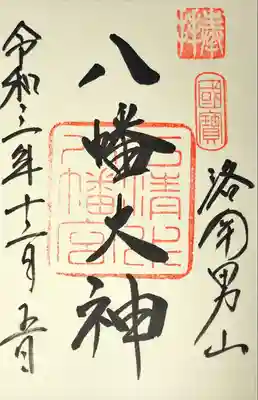 奉拝
國寶
洛南男山
八幡大神
石清水八幡宮
令和三年十二月五日